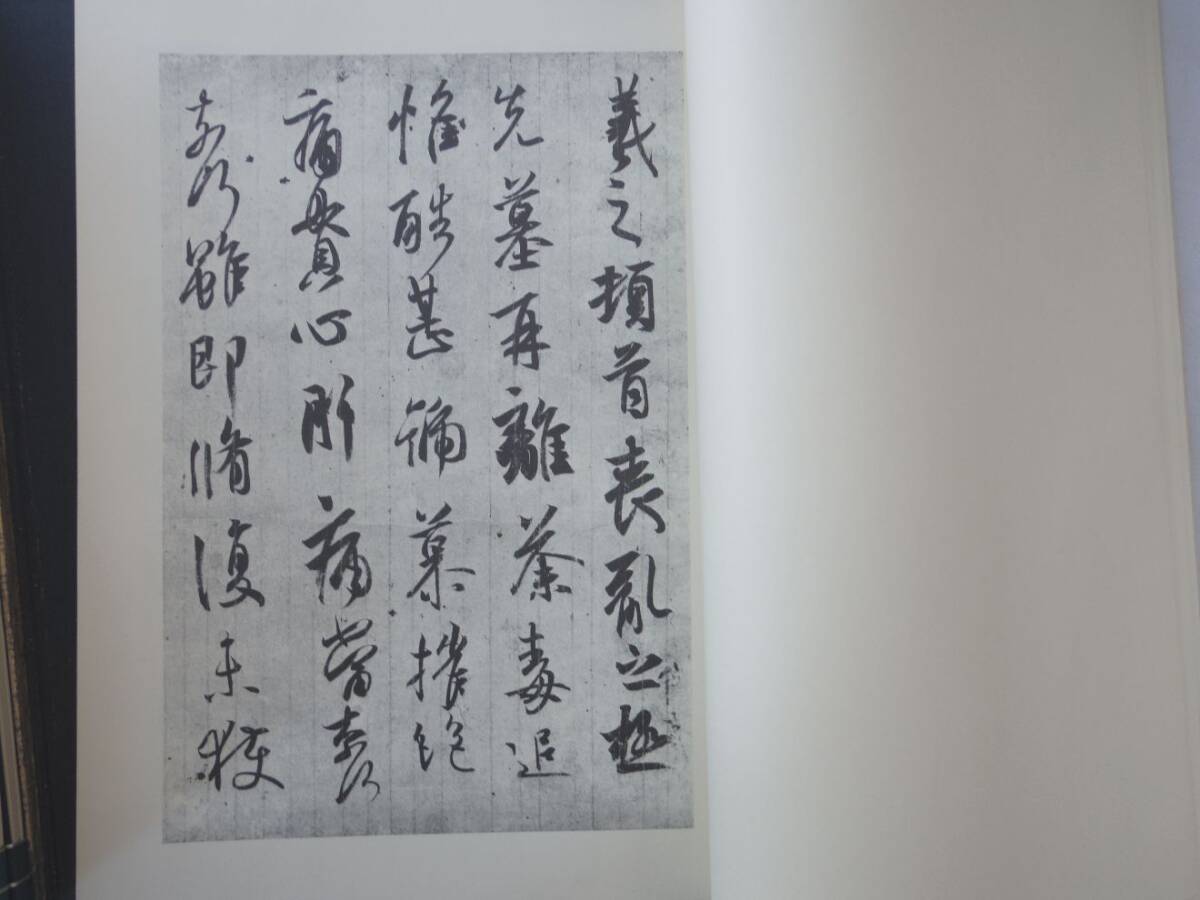 羲之頓首喪亂之極
先墓再離荼毒追
惟酷甚號慕摧絶
痛貫心肝痛當奈何
奈何雖即脩復未獲